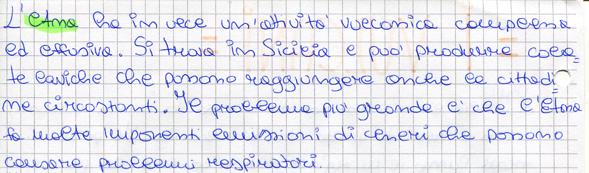 L'etna ha in vece un'attività vulcanica complessa
ed effusiva. Si trova in Sicilia e può produrre cola=
te laviche che possono raggiungere anche le cittadi
ne circostanti. Il problema più grande è che l'Etna
fa molte imponenti emissioni di ceneri che possono
causare problemi respiratori.